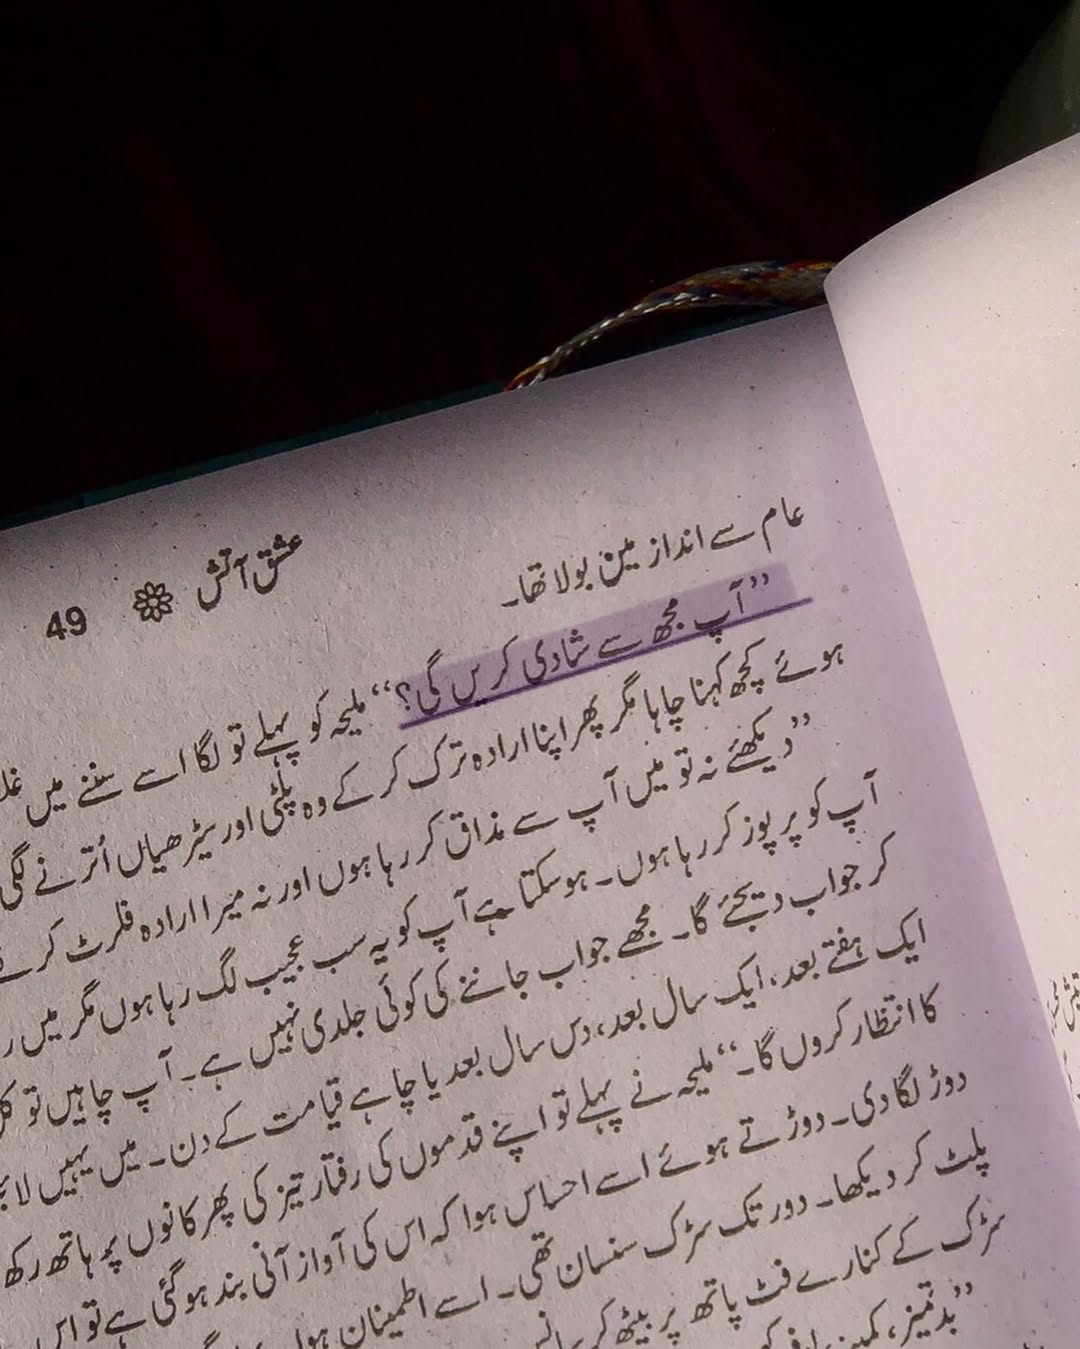 عشق آتش 49
عام سے انداز میں بولا تھا۔
”آپ مجھ سے شادی کریں گی؟“ ملیحہ کو پہلے تو لگا اسے سننے میں
ہوئے کچھ کہنا چاہا مگر پھر اپنا ارادہ ترک کر کے وہ پلٹی اور سیڑھیاں اُترنے لگی
”دیکھئے نہ تو میں آپ سے مذاق کر رہا ہوں اور نہ میرا ارادہ فلرٹ کرنے
آپ کو پرپوز کر رہا ہوں۔ ہو سکتا ہے آپ کو یہ سب عجیب لگ رہا ہوں مگر میں
کر جواب دیجئے گا۔ مجھے جواب جاننے کی کوئی جلدی نہیں ہے۔ آپ چاہیں تو
ایک ہفتے بعد، ایک سال بعد، دس سال بعد یا چاہے قیامت کے دن۔ میں یہیں
کا انتظار کروں گا۔“ ملیحہ نے پہلے تو اپنے قدموں کی رفتار تیز کی پھر کانوں پر ہاتھ رکھ
دوڑ لگا دی۔ دوڑتے ہوئے اسے احساس ہوا کہ اس کی آواز آنی بند ہو گئی ہے تو اس
پلٹ کر دیکھا۔ دور تک سڑک سنسان تھی۔ اسے اطمینان ہوا
سڑک کے کنارے فٹ پاتھ پر بیٹھ کر
”بدتمیز،